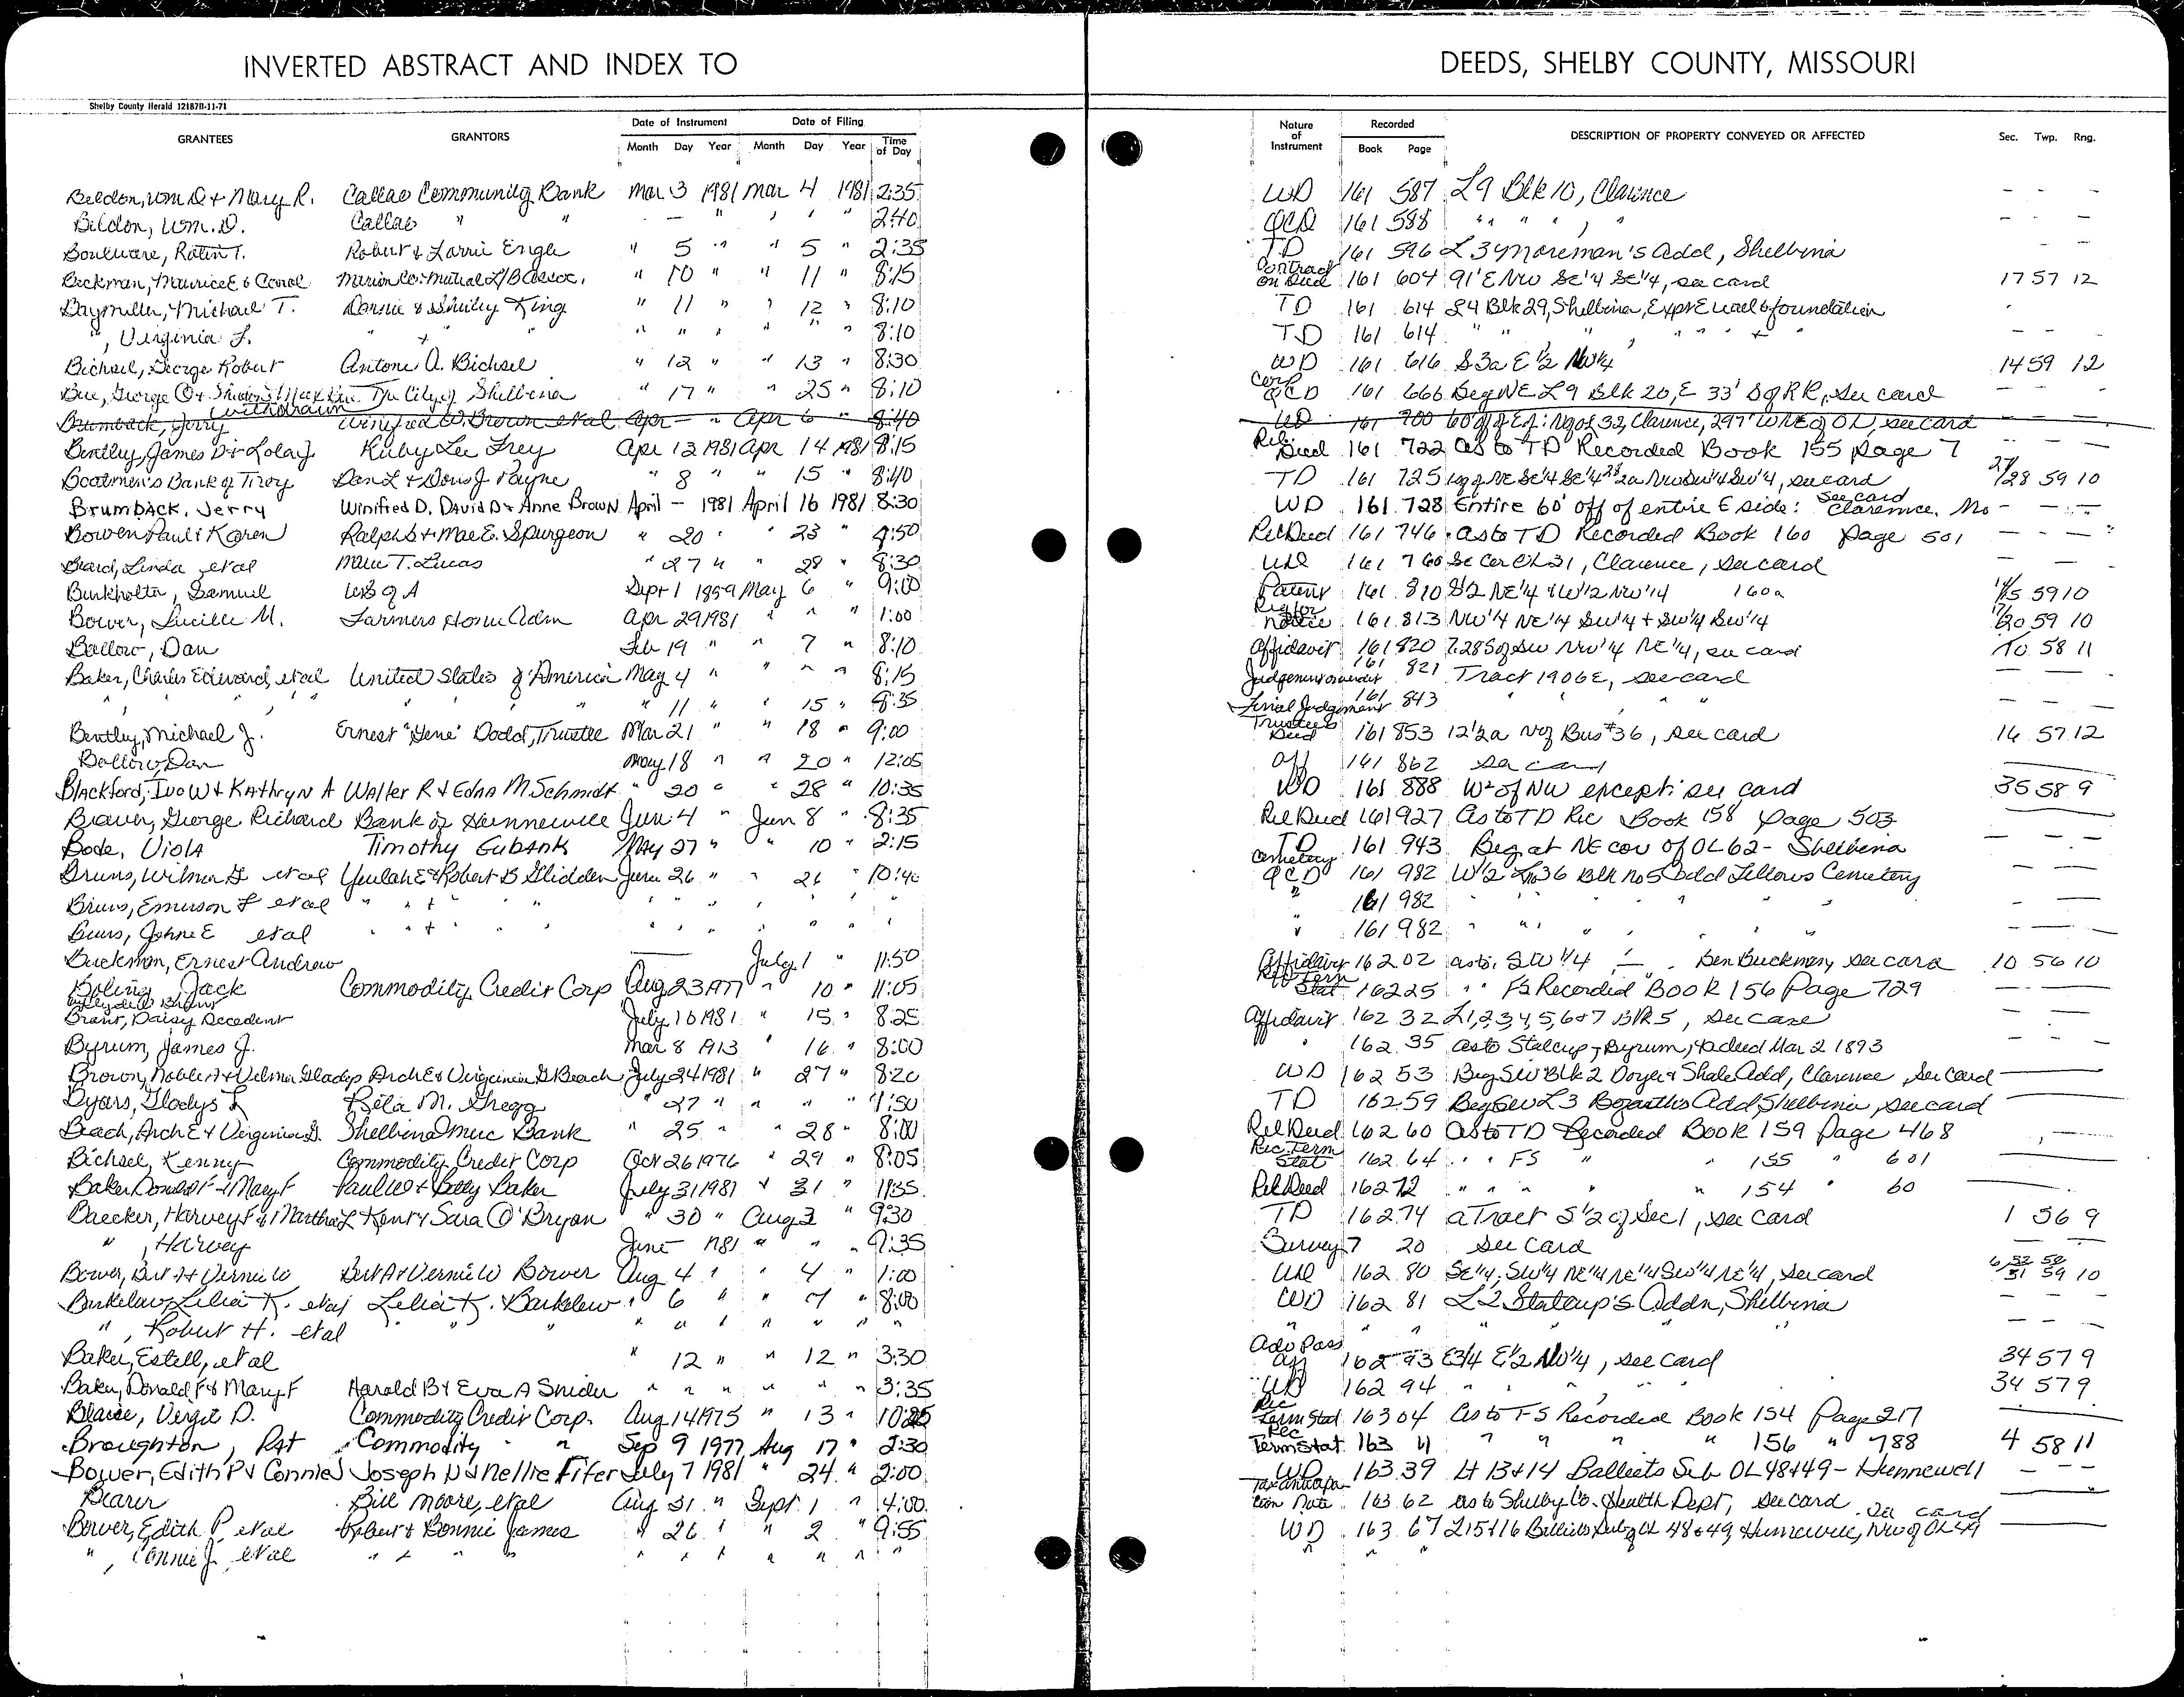 INVERTED ABSTRACT AND INDEX TO DEEDS, SHELBY COUNTY, MISSOURI
Shelby County Herald 12187B-11-71
GRANTEES GRANTORS Date of Instrument Month Day Year Date of Filing Month Day Year Time of Day Nature of Instrument Recorded Book Page DESCRIPTION OF PROPERTY CONVEYED OR AFFECTED Sec. Twp. Rng.
Beldon, Wm D & Mary R. Callao Community Bank Mar 3 1981 Mar 4 1981 2:35 WD 161 587 L9 Blk 10, Clarence - - -
Beldon, Wm. D. Callao " " - " " " 2:40 QCD 161 588 " " " " - - -
Bouluare, Robin T. Robert & Lorrie Engle " 5 " " 5 " 2:35 TD 161 596 L 3 Moreman's Add, Shelbina - - -
Beckman, Maurice E & Carol Marion Co. Mutual L/B Assoc. " 10 " " 11 " 8:15 Contract on Deed 161 604 91' E NW SE 1/4 SE 1/4, see card 17 57 12
Daymiller, Michael T. Donnie & Shirley King " 11 " " 12 " 8:10 TD 161 614 L4 Blk 29, Shelbina, Exp E wall & foundation
", Virginia L. " + " " " " " " " 8:10 TD 161 614 " " " " " + "
Bichsel, George Robert Antone A. Bichsel " 12 " " 13 " 8:30 WD 161 616 S 3a E 1/2 NW 1/4 14 59 12
Bue, George O & The City of Shelbina " 17 " " 25 " 8:10 Corp QCD 161 666 Beg NE L9 Blk 20, E 33' S of RR, see card - - -
withdrawn
Brumback, Jerry Winifred W. Brown et al Apr - " Apr 6 " 8:40 WD 161 700 60' off E of 32, Clarence, 297' W NE of OL, see card
Bentley, James D & Lola J. Ruby Lee Frey Apr 13 1981 Apr 14 1981 8:15 Rel. Deed 161 722 As to TD Recorded Book 155 page 7
Boatmen's Bank of Troy Dan L & Doris J Payne " 8 " " 15 " 8:40 TD 161 725 NE SE 1/4 SE 1/4 2a NW SW 1/4 SW 1/4, see card 27/28 59 10
Brumback, Jerry Winifred D, David D & Anne Brown April - 1981 April 16 1981 8:30 WD 161 728 Entire 60' off of entire E side: see card Clarence, Mo - - -
Bowen Paul & Karen Ralph S & Mae E. Spurgeon " 20 " " 23 " 9:50 Rel Deed 161 746 as to TD Recorded Book 160 page 501 - - -
Beard, Linda et al Marie T. Lucas " 27 " " 28 " 8:30 WD 161 760 SE Cor OL 31, Clarence, see card - - -
Burkholter, Samuel US of A Sept 1 1859 May 6 " 9:00 Patent 161 810 S 1/2 NE 1/4 & W 1/2 NW 1/4 160a 14/5 59 10
Bower, Lucille M. Farmers Home Adm Apr 29 1981 " " " 1:00 Notice 161 813 NW 1/4 NE 1/4 SW 1/4 + SW 1/4 SW 1/4 17/20 59 10
Ballow, Dan Feb 19 " " 7 " 8:10 Affidavit 161 820 SW NW 1/4 NE 1/4, see card 10 58 11
Baker, Charles Edward, et al United States of America May 4 " " " " 8:15 Judgement 161 821 Tract 1906E, see card - - -
" " " " " " 11 " " 15 " 8:35 Final Judgement 161 843 " " " - - -
Bentley, Michael J. Ernest "Gene" Dodd, Trustee Mar 21 " " 18 " 9:00 Trustees Deed 161 853 12 1/2a N of Bus #36, see card 16 57 12
Ballow, Dan May 18 " " 20 " 12:05 Aff 161 862 see card
Blackford, Ivo W & Kathryn A Walter R & Edna M Schmidt " 20 " " 28 " 10:35 WD 161 888 W 2 of NW except: see card 35 58 9
Braun, George Richard Bank of Hunnewell Jun. 4 " Jun 8 " 8:35 Rel Deed 161 927 as to TD Rec Book 158 page 503
Bode, Viola Timothy Eubank May 27 " " 10 " 2:15 TD 161 943 Beg. at NE cor of OL 62 - Shelbina - - -
Bruns, Wilma G et al Yeulah E & Robert B Glidden June 26 " " 26 " 10:40 Cemetery QCD 161 982 W 1/2 L No 36 Blk No 5 Odd Fellows Cemetery - - -
Bruns, Emerson F et al " " + " " " " " " " " " 161 982 " " " " " - - -
Bruns, John E et al " " + " " " " " " " " " 161 982 " " " " " - - -
Buckman, Ernest Andrew July 1 " 11:50 Affidavit 162 02 as to SW 1/4 - Ben Buckman, see card 10 56 10
Boling, Jack Commodity Credit Corp Aug 23 1977 " 10 " 11:05 Rec Term Stat 162 25 " " FS Recorded Book 156 Page 729
Brant, Daisy Decedent July 10 1981 " 15 " 8:25 Affidavit 162 32 L1,2,3,4,5,6&7 Blk 5, see card
Byrum, James J. Mar 8 1913 " 16 " 8:00 " 162 35 as to Stalcup - Byrum, deed Mar 2 1893
Brown, Noble A & Velma Gladys Arch E & Virginia G Beach July 24 1981 " 27 " 8:20 WD 162 53 Beg SW Blk 2 Doyle & Shale Add, Clarence, see card
Byars, Gladys L Rita M. Gregg " 27 " " " " 9:50 TD 162 59 Beg SW L 3 Bozarths Add, Shelbina, see card
Beach, Arch E & Virginia G. Shelbina Merc Bank " 25 " " 28 " 8:00 Rel Deed 162 60 as to TD Recorded Book 159 Page 468
Bichsel, Kenny Commodity Credit Corp Oct 26 1976 " 29 " 8:05 Rec Term Stat 162 64 " " FS " " 155 " 601
Baker Donald F & Mary F Paul W & Betty Baker July 31 1981 " 31 " 11:35 Rel Deed 162 72 " " " " " 154 " 60
Baecker, Harvey F & Martha L Kent & Sara O'Bryan " 30 " Aug 3 " 9:30 TD 162 74 a Tract S 1/2 of Sec 1, see card 1 56 9
" , Harvey June 1981 " " " 9:35 Survey 7 20 see card
Bower, Burt A & Vernie W Burt A & Vernie W Bower Aug 4 " " 4 " 1:00 WD 162 80 SE 1/4, SW 1/4 NE 1/4 NE 1/4 SW 1/4 NE 1/4, see card 59 10
Barkelew, Lelia K. et al Lelia K. Barkelew " 6 " " 7 " 8:00 WD 162 81 L2 Stalcup's Addn, Shelbina - - -
" , Robert H. et al " " " " " " " " " " " " " " - - -
Baker, Estell, et al " 12 " " 12 " 3:30 Adv Poss Aff 162 93 E 3/4 E 1/2 NW 1/4, see card 34 57 9
Baker, Donald F & Mary F Harold B & Eva A Snider " " " " " " 3:35 WD 162 94 " " " " " 34 57 9
Blaise, Virgil D. Commodity Credit Corp. Aug 14 1975 " 13 " 10:25 Rec Term Stat 163 04 as to FS Recorded Book 154 Page 217
Broughton, Pat Commodity " " Sep 9 1977 Aug 17 " 2:30 Rec Term Stat. 163 11 " " " " 156 " 788 4 58 11
Bower, Edith P & Connie J Joseph D & Nellie Fifer July 7 1981 " 24 " 2:00 WD 163 39 Lt 13 & 14 Balliets Sub OL 48 & 49 - Hunnewell - - -
Bearer Bill Moore, et al Aug 31 " Sept. 1 " 4:00 Tax anticipation Note 163 62 as to Shelby Co. Health Dept, see card
Bower, Edith P. et al Robert & Bonnie James " 26 " " 2 " 9:55 WD 163 67 L 15 & 16 Balliets Sub of OL 48 & 49, Hunnewell, NW of OL 49 see card
" , Connie J. et al " " " " " " " " " " " " " "